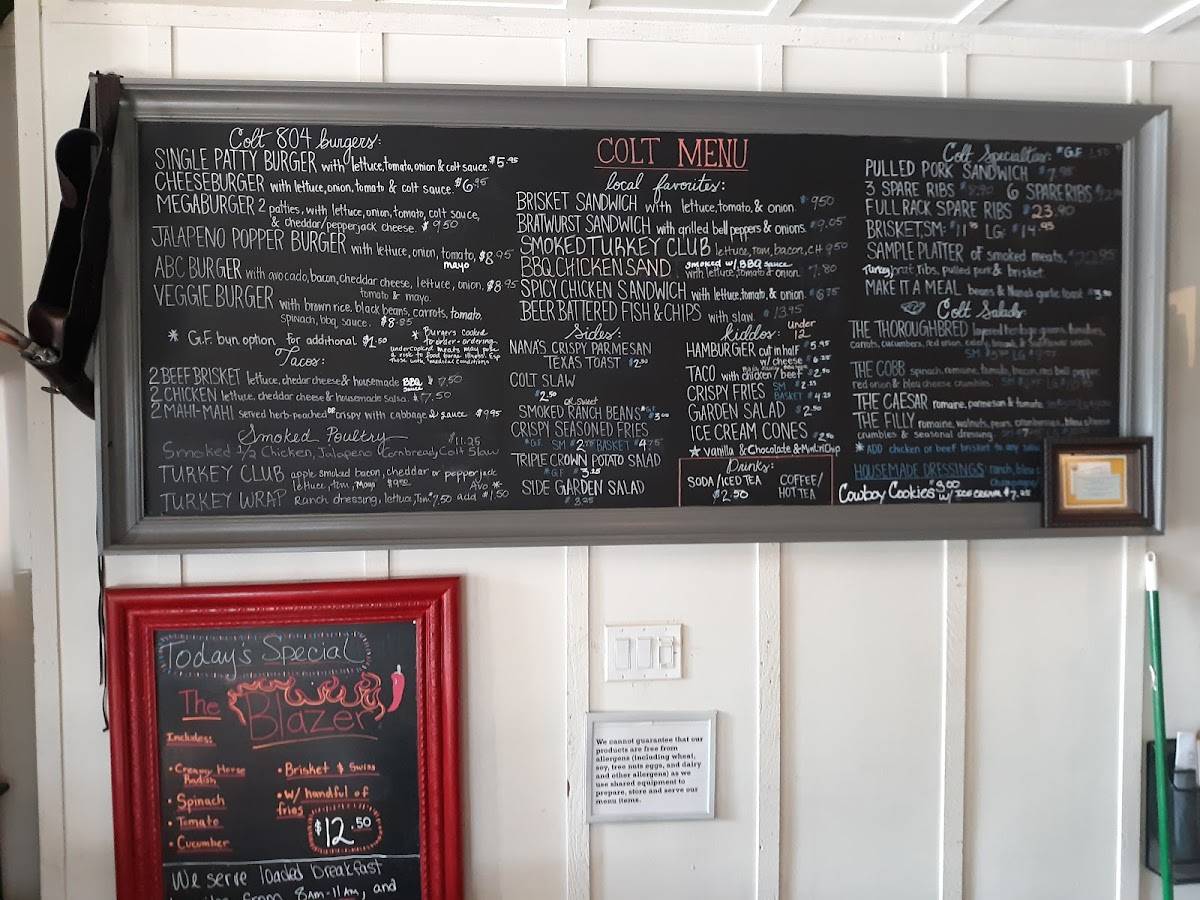 COLT MENU
Colt 804 burgers:
SINGLE PATTY BURGER with lettuce, tomato, onion & colt sauce. $5.95
CHEESEBURGER with lettuce, onion, tomato & colt sauce. $6.95
MEGABURGER 2 patties, with lettuce, onion, tomato, colt sauce,
& cheddar/pepperjack cheese. $9.50
JALAPENO POPPER BURGER with lettuce, onion, tomato, $8.95
mayo
ABC BURGER with avocado, bacon, cheddar cheese, lettuce, onion. $8.95
tomato & mayo.
VEGGIE BURGER with brown rice, black beans, carrots, tomato,
spinach, bbq sauce. $8.85
* G.F. bun option for additional $1.50
* Burgers cooked
to-order-ordering
undercooked meats may pose
a risk to food borne illness. Esp
those with medical conditions
Tacos:
2 BEEF BRISKET lettuce, chedar cheese & housemade BBQ sauce $7.50
2 CHICKEN lettuce, cheddar cheese & housemade salsa. $7.50
2 MAHI-MAHI served herb-peached or crispy with cabbage & sauce $9.95
Smoked Poultry
$11.25
Smoked 1/2 Chicken, Jalapeno Cornbread, Colt Slaw
TURKEY CLUB apple smoked bacon, cheddar or pepperjack
lettuce, tom, Mayo Avo *
TURKEY WRAP Ranch dressing, lettuce, Tom. 7.50 add $1.50
local favorites:
BRISKET SANDWICH with lettuce, tomato, & onion. $9.50
BRATWURST SANDWICH with grilled bell peppers & onions. $9.05
SMOKED TURKEY CLUB lettuce, tom, bacon, CH 9.50
BBQ CHICKEN SAND smoked w/ BBQ sauce
with lettuce, tomato & onion. 7.80
SPICY CHICKEN SANDWICH with lettuce, tomato, & onion. $6.75
BEER BATTERED FISH & CHIPS with slaw. $13.95
Sides:
NANA'S CRISPY PARMESAN
TEXAS TOAST $2.50
COLT SLAW
$2.50
or sweet
SMOKED RANCH BEANS *GF $3.00
CRISPY SEASONED FRIES
*GF. SM $2.75 BASKET $4.75
TRIPLE CROWN POTATO SALAD
*GF $3.25
SIDE GARDEN SALAD
$3.25
Kiddos: Under 12
HAMBURGER cut in half $5.95
w/ cheese $6.25
TACO with chicken / beef $2.50
CRISPY FRIES SM $2.25
BASKET $4.25
GARDEN SALAD $2.50
ICE CREAM CONES $2.50
★ Vanilla & Chocolate & Mint 'n' Chip
Drinks:
SODA/ICED TEA COFFEE/
$2.50 HOT TEA
Colt Specialties: *G.F. 1.50
PULLED PORK SANDWICH $7.95
3 SPARE RIBS $8.90 6 SPARE RIBS
FULL RACK SPARE RIBS $23.90
BRISKET, SM: $11.95 LG: $14.95
SAMPLE PLATTER of smoked meats,
Turkey, brat, ribs, pulled pork & brisket
MAKE IT A MEAL beans & Nana's garlic toast $3.90
Colt Salads:
THE THOROUGHBRED layered heritage greens, tomatoes,
carrots, cucumbers, red onion, celery, & sunflower seeds,
THE COBB spinach, romaine, tomato, bacon, red bell pepper,
red onion & bleu cheese crumbles.
THE CAESAR romaine, parmesan & tomato.
THE FILLY romaine, walnuts, pears, cranberries, bleu cheese
crumbles & seasonal dressing.
* ADD chicken or beef brisket to any salad
HOUSEMADE DRESSINGS ranch, bleu c
Champagne
Cowboy Cookies $3.00 w/ ICE CREAM $7.25
Today's Special
The Blazer
Includes:
• Creamy Horse
Radish
• Spinach
• Tomato
• Cucumber
• Brisket & Swiss
• w/ handful of
fries
$12.50
We serve loaded breakfast
from 8AM-11AM, and
We cannot guarantee that our
products are free from
allergens (including wheat,
soy, tree nuts eggs, and dairy
and other allergens) as we
use shared equipment to
prepare, store and serve our
menu items.